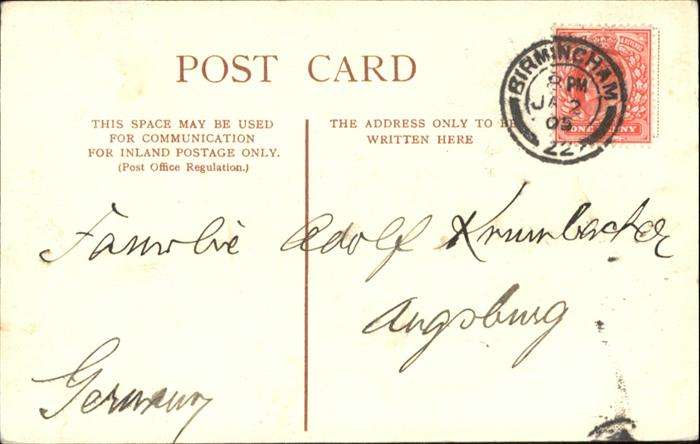 POST CARD
THIS SPACE MAY BE USED
FOR COMMUNICATION
FOR INLAND POSTAGE ONLY.
(Post Office Regulation.)
THE ADDRESS ONLY TO BE
WRITTEN HERE
BIRMINGHAM
8 PM
JA 2
22
ONE PENNY
Familie Adolf Krumbacher
Augsburg
Germany